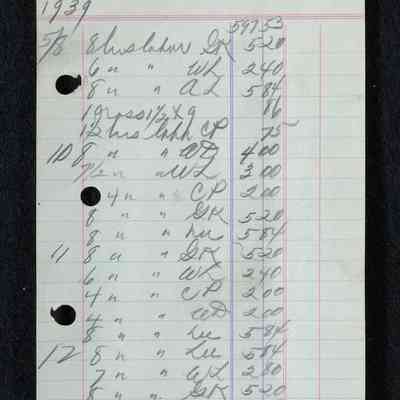 1939
597 53
5/8 8 hrs labor GK 5 20
6 " " WL 2 40
8 " " AL 5 84
1 gross 1 1/2 X 9 86
1 1/2 hrs labr CP 75
10 8 " " WD 4 00
7 1/2 " " WL 3 00
4 " " CP 2 00
8 " " GK 5 20
8 " " Lu 5 84
11 8 " " GK 5 20
6 " " WL 2 40
4 " " CP 2 00
4 " " WD 2 00
8 " " Lu 5 84
12 8 " " Lu 5 84
7 " " WL 2 80
8 " " GK 5 20